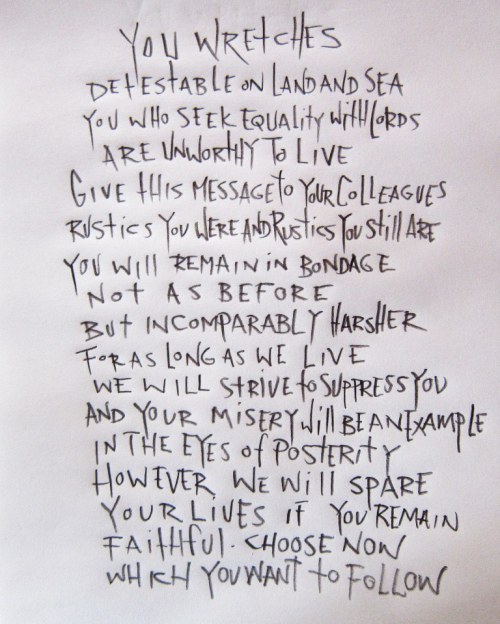 YOU WRETCHES
DETESTABLE ON LAND AND SEA
YOU WHO SEEK EQUALITY WITH LORDS
ARE UNWORTHY TO LIVE
GIVE THIS MESSAGE TO YOUR COLLEAGUES
RUSTICS YOU WERE AND RUSTICS YOU STILL ARE
YOU WILL REMAIN IN BONDAGE
NOT AS BEFORE
BUT INCOMPARABLY HARSHER
FOR AS LONG AS WE LIVE
WE WILL STRIVE TO SUPPRESS YOU
AND YOUR MISERY WILL BE AN EXAMPLE
IN THE EYES OF POSTERITY
HOWEVER, WE WILL SPARE
YOUR LIVES IF YOU REMAIN
FAITHFUL. CHOOSE NOW
WHICH YOU WANT TO FOLLOW